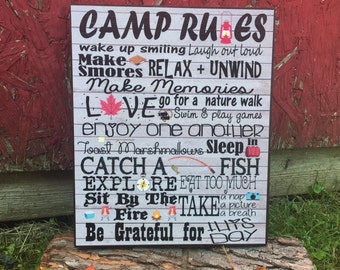 CAMP RULES
wake up smiling Laugh out loud
Make Smores RELAX + UNWIND
Make Memories
LOVE go for a nature walk
Swim & play games
enjoy one another
Toast Marshmallows Sleep in
CATCH A FISH
EXPLORE EAT TOO MUCH
Sit By The Fire TAKE a nap
a picture
a breath
Be Grateful for THIS DAY